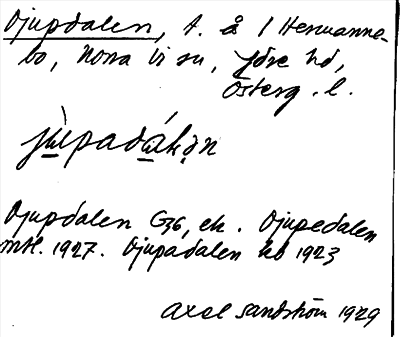 Djupdalen, t. å 1 Hermanne-
bo, Norra Vi sn, Ydre hd,
Österg. l.
jùpadáḷən
Djupdalen G36, ek. Djupedalen
mtl. 1927. Djupadalen kb 1923
Axel Sandström 1929